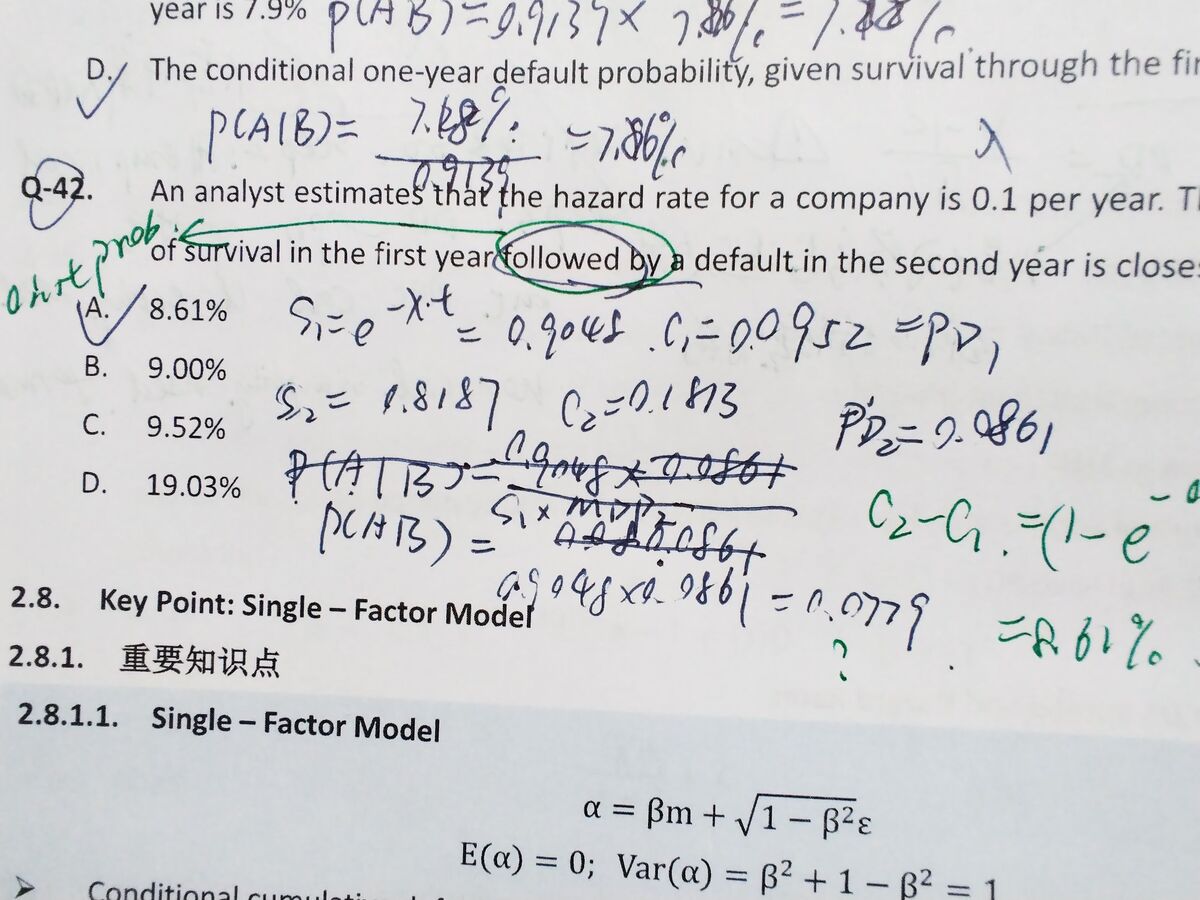 year is 7.9% P(AB)=0.9139×7.86%=
D. The conditional one-year default probability, given survival through the fir
P(A|B)= 7.18%/0.9139 =7.86%
λ
Q-42. An analyst estimates that the hazard rate for a company is 0.1 per year. T
prob.
of survival in the first year followed by a default in the second year is close
A. 8.61% S₁=e^-λ·t = 0.9048 . C₁=0.0952 =PD₁
B. 9.00%
S₂= 0.8187 C₂=0.1813 PD₂=0.0861
C. 9.52%
P(A|B)= 0.9048×0.0861
D. 19.03%
S₁×MDP₂
P(AB) = 0.0861
C₂-C₁.=(1-e^-0
0.9048×0.0861=0.0779
2.8. Key Point: Single – Factor Model
?
=8.61%
2.8.1. 重要知识点
2.8.1.1. Single – Factor Model
α = βm + √1 − β²ε
E(α) = 0; Var(α) = β² + 1 − β² = 1
➤ Conditional cumulative